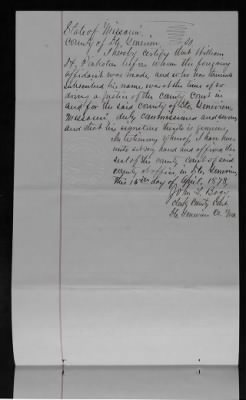 State of Missouri
County of Ste. Genevieve } ss
I hereby certify that William
H. before whom the foregoing
affidavit was made, and who has thereunto
subscribed his name, was at the time of so
doing a Justice of the County Court in
and for the said County of Ste. Genevieve,
Missouri, duly commissioned and sworn
and that his signature thereto is genuine,
In testimony whereof, I have here
unto set my hand and affixed the
seal of the county court of said
county at office in Ste. Genevieve
this 16 day of April, 1878,
Clerk County Court
Ste. Genevieve Co. Mo.